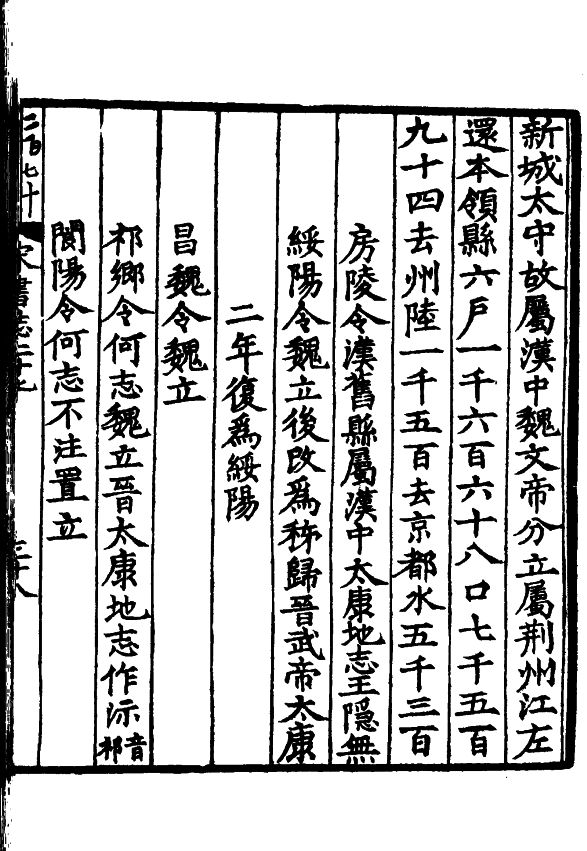 新城太守故屬漢中魏文帝分立屬荆州江左
還本領縣六戶一千六百六十八口七千五百
九十四去州陸一千五百去京都水五千三百
房陵令漢舊縣屬漢中太康地志王隱無
綏陽令魏立後改爲秭歸晉武帝太康
二年復爲綏陽
昌魏令魏立
祁鄉令何志魏立晉太康地志作沶音祁
閬陽令何志不注置立
二百七十